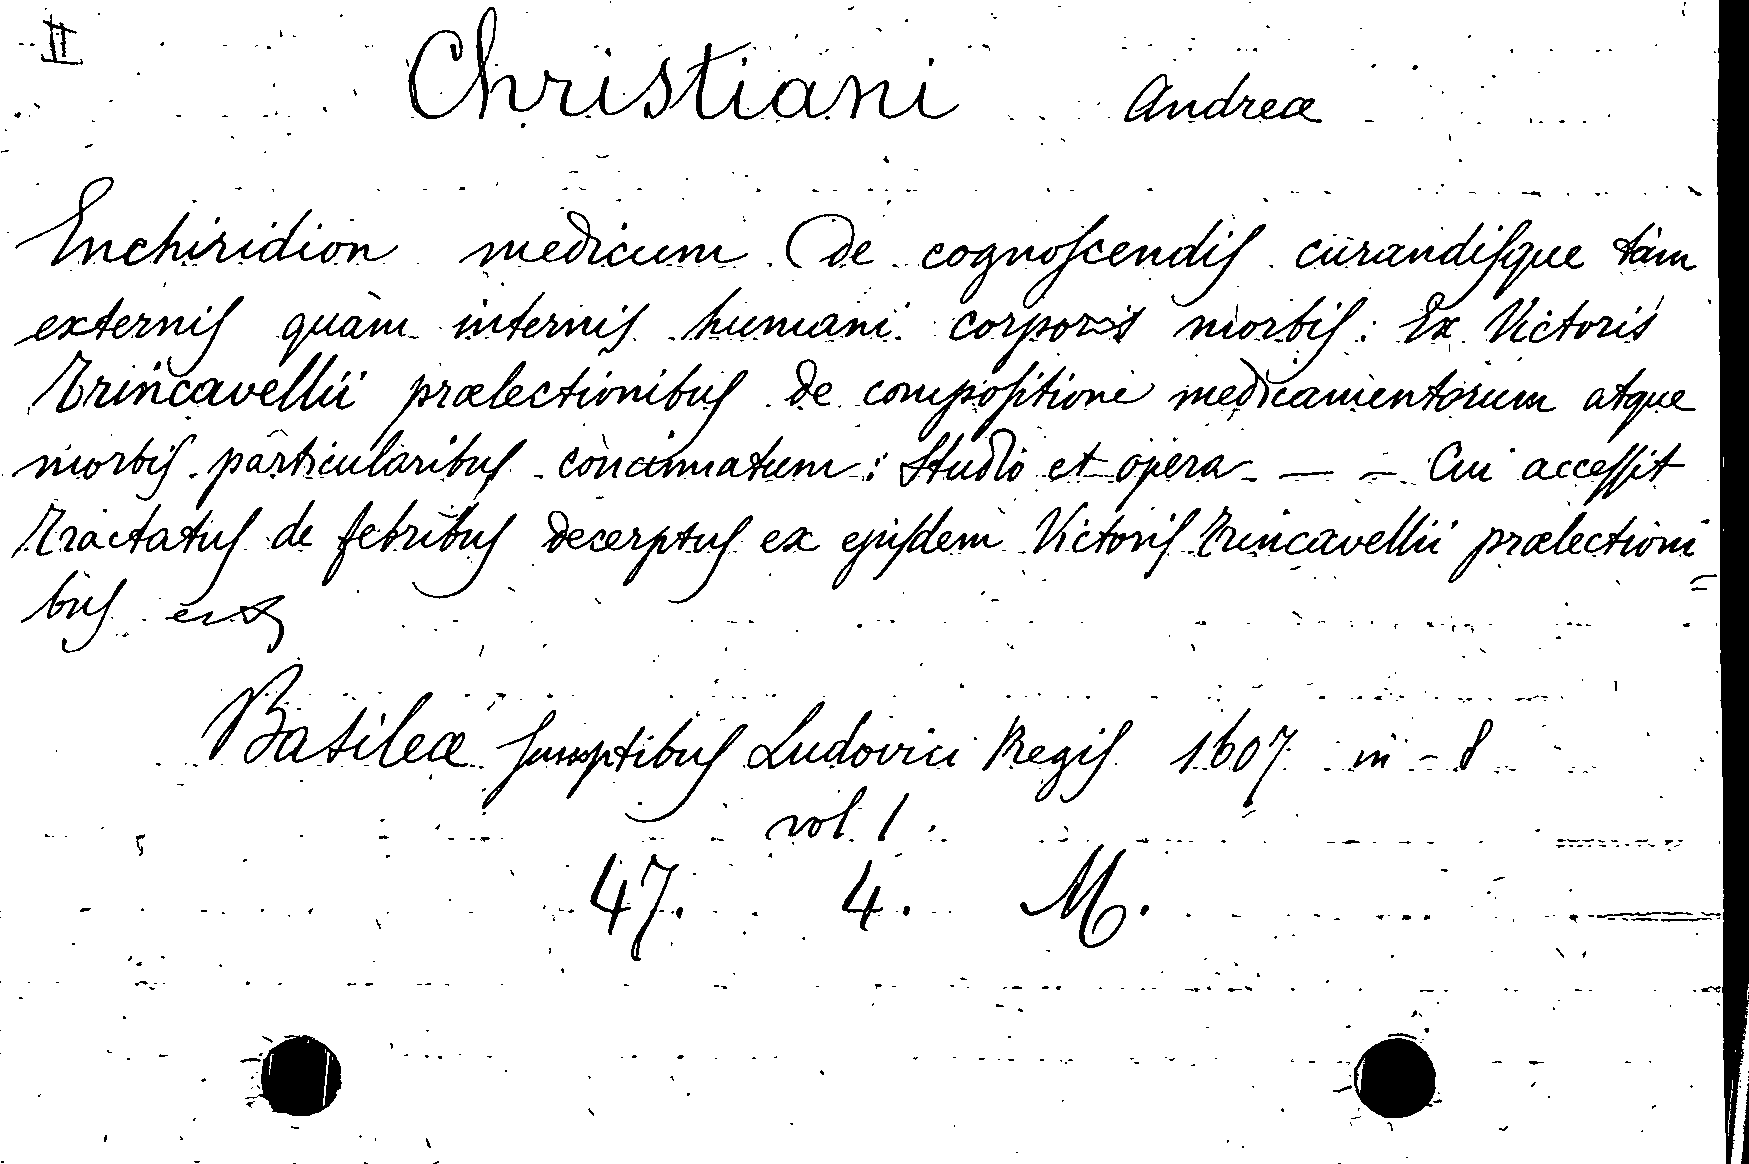 II
Christiani Andreæ
Enchiridion medicum De cognoſcendiſ curandiſque tàm
externiſ quàm interniſ humani corporis morbiſ: Ex Victoris
Trincavellii prælectionibuſ de compoſitione medicamentorum atque
morbiſ particularibuſ concinnatum: Studio et opera - — - Cui acceſſit
Tractatuſ de febribuſ decerptuſ ex ejuſdem Victoriſ Trincavellii prælectioni=
buſ
Basileæ ſumptibuſ Ludovici Regiſ 1607 in - 8
vol. 1.
47. 4. M.